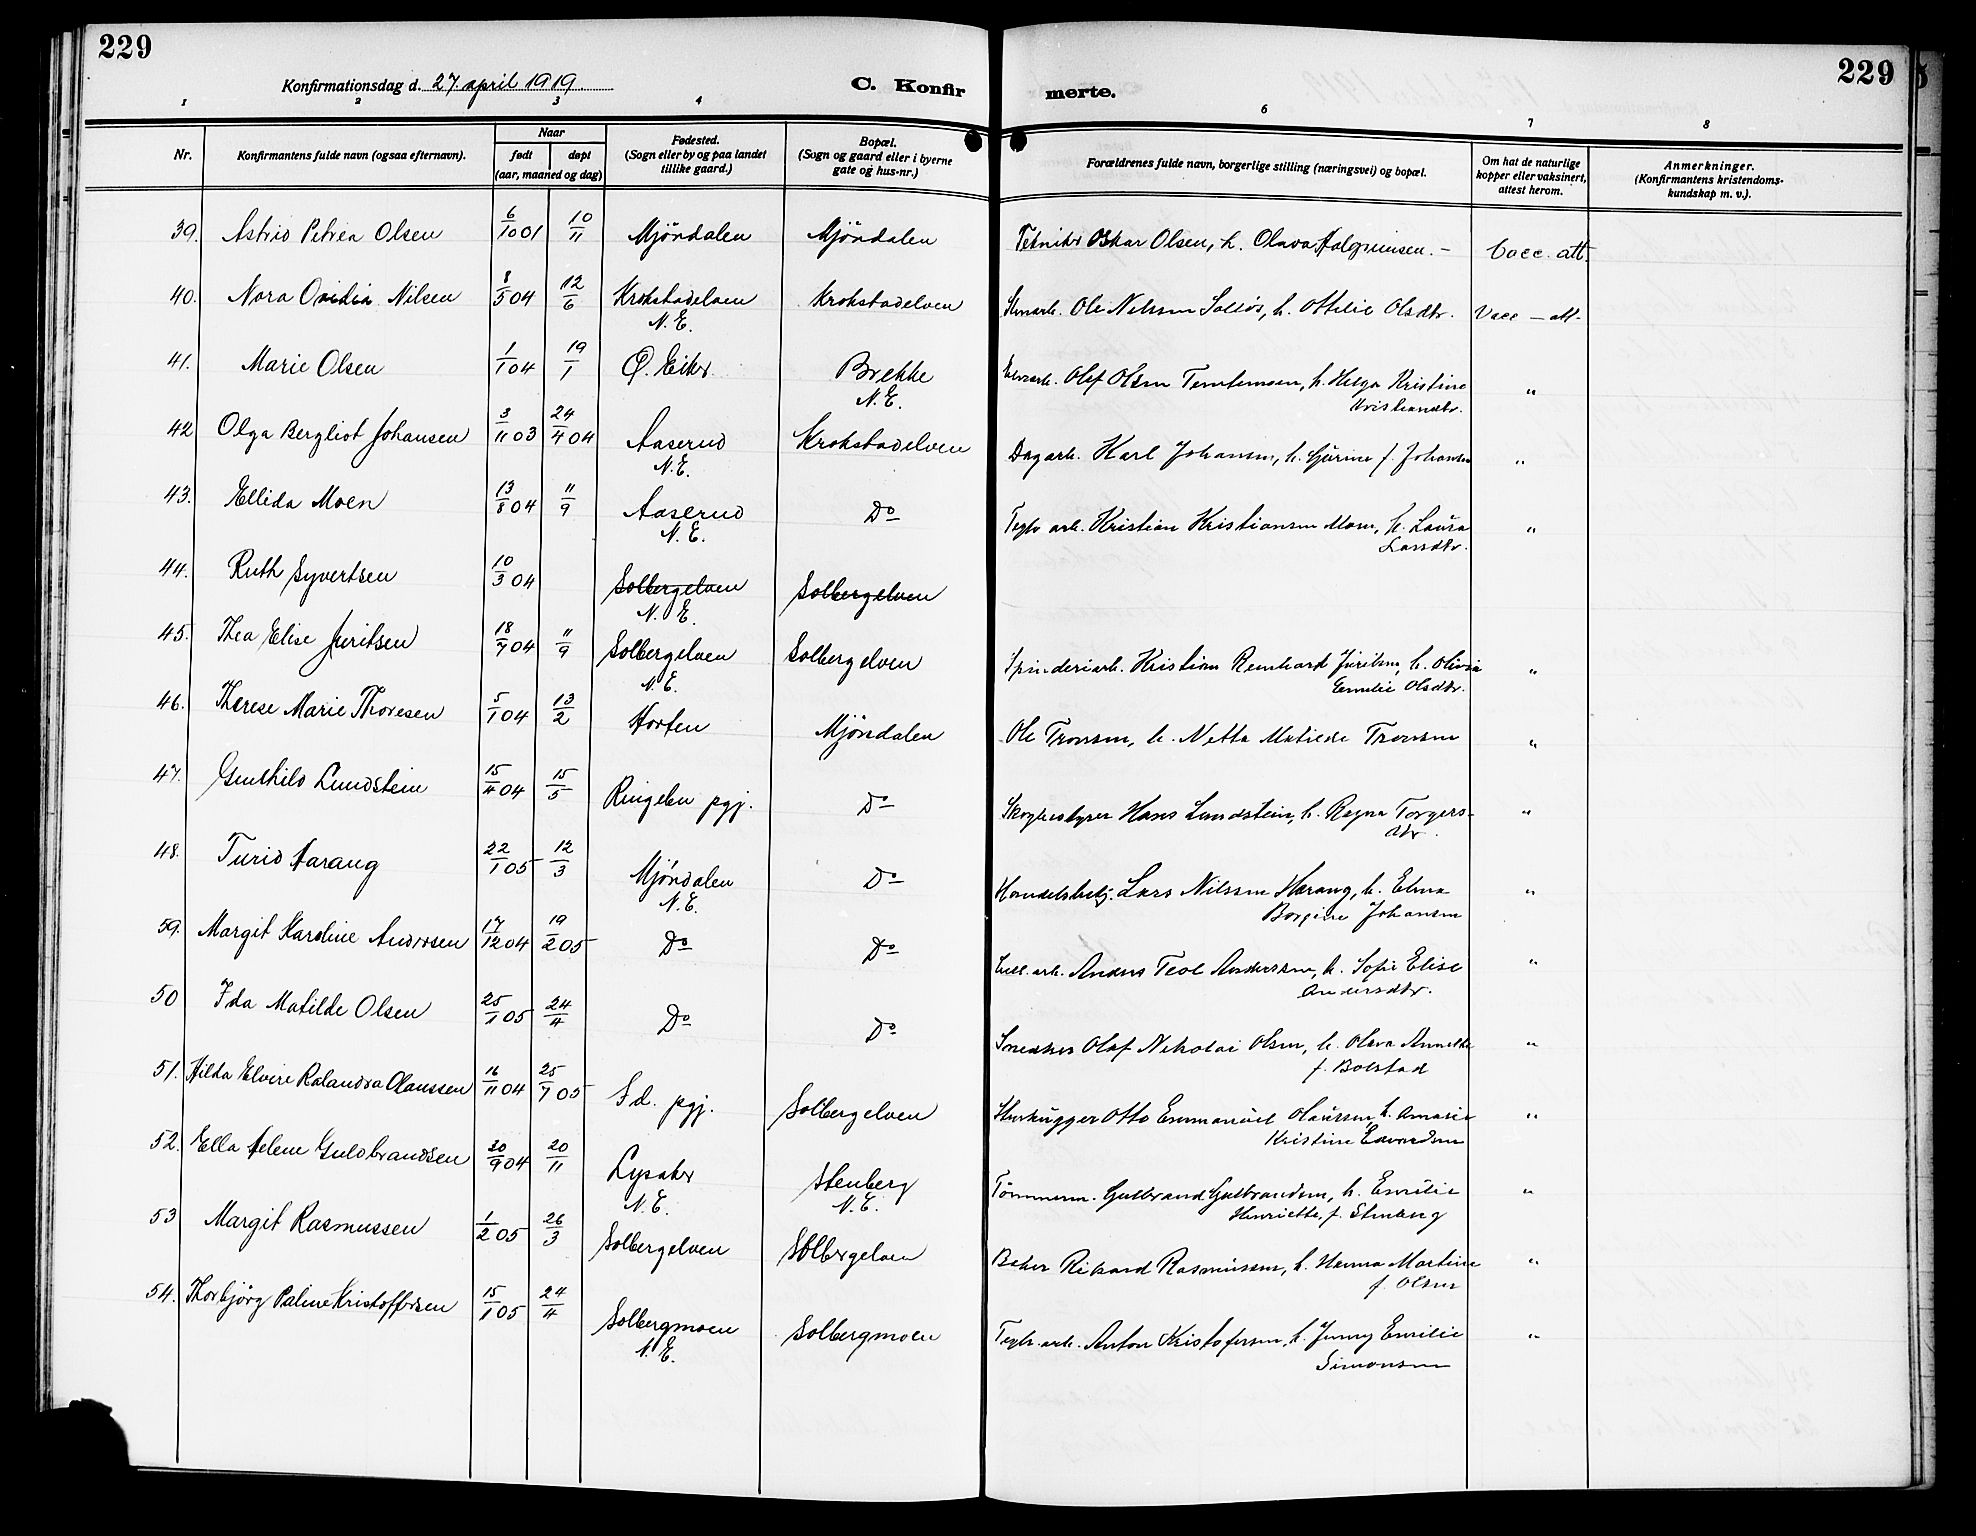 229
Konfirmationsdag d. 27. april 1919.
C. Konfir
merte.
229
1 2 3 4 6 7 8
Nr.
Konfirmantens fulde navn (ogsaa efternavn).
Naar
født døpt
(aar, maaned og dag)
Fødested.
(Sogn eller by og paa landet
tillike gaard.)
Bopæl.
(Sogn og gaard eller i byerne
gate og hus-nr.)
Forældrenes fulde navn, borgerlige stilling (næringsvei) og bopæl.
Om hat de naturlige
kopper eller vaksinert,
attest herom.
Anmerkninger.
(Konfirmantens kristendoms-
kundskap m. v.).
39. Astrid Petrea Olsen 6/10 01 10/11 Mjöndalen Mjöndalen Oskar Olsen, h. Olava – Vacc. att.
40. Nora Ovidia Nilsen 8/5 04 12/6 Krokstadelven Krokstadelven Ole Nilssen h. Ottilie Olsdtr. Vacc – att.
N. E.
41. Marie Olsen 1/1 04 19/1 Ø. Eiker Brekke Olaf Olsen h. Helga Kristine "
N. E. Kristiandtr.
42 Olga Bergliot Johansen 3/11 03 24/4 04 Aaserud Krokstadelven Dagarb. Karl Johansen, h. Gurine f. Johansen "
N. E.
43. Ellida Moen 13/8 04 11/9 Aaserud Do Teglv arb. Kristian Kristiansen Moen, h. Laura "
N. E. Larsdtr.
44. Ruth Syvertsen 10/3 04 Solbergelven Solbergelven
N. E.
45. Thea Elise Juritsen 18/7 04 11/9 Solbergelven Solbergelven Spinderiarb. Kristian Reinhard Juritsen, h. Olivia "
N. E. Emilie Olsdtr.
46. Therese Marie Thoresen 5/1 04 13/2 Horten Mjöndalen Ole Tronsen, h. Netta Matilde Tronsen "
47. Gunhild Lundstein 15/4 04 15/5 Ringebu pgj. Do Skogbestyrer Hans Lundstein, h. Ragna Torgers- "
dtr.
48. Turid Harang 22/1 05 12/3 Mjöndalen Do Handelsbetj. Lars Nilssen Harang, h. Elma "
N. E. Borgine Johansen
59. Margit Karoline Andersen 17/12 04 19/2 05 Do Do Cell. arb. Anders Teol Anderssen, h. Sofie Elise "
Andersdtr.
50 Ida Matilde Olsen 25/1 05 24/4 Do Do Snedker Olaf Nikolai Olsen, h. Olava Annette "
f. Bolstad
51. Hilda Elvire Rolandra Olaussen 16/11 04 25/7 05 Sd. pgj. Solbergelven Stenhugger Otto Emmanuel Olaussen, h. Amasie "
Kristine Edvardsen
52. Ella Helene Guldbrandsen 20/9 04 20/11 Lysaker Stenberg Tömmerm. Gulbrand Gulbrandsen, h. Emilie "
N. E. N. E. Henriette f. Stenberg
53 Margit Rasmussen 1/2 05 26/3 Solbergelven Solbergelven Baker Rikard Rasmussen, h. Hanna Martine "
f. Olsen
54. Thorbjörg Paline Kristoffersen 15/1 05 24/4 Solbergmoen Solbergmoen Teglv. arb. Anton Kristofersen, h. Jenny Emilie "
N. E. Simonsen